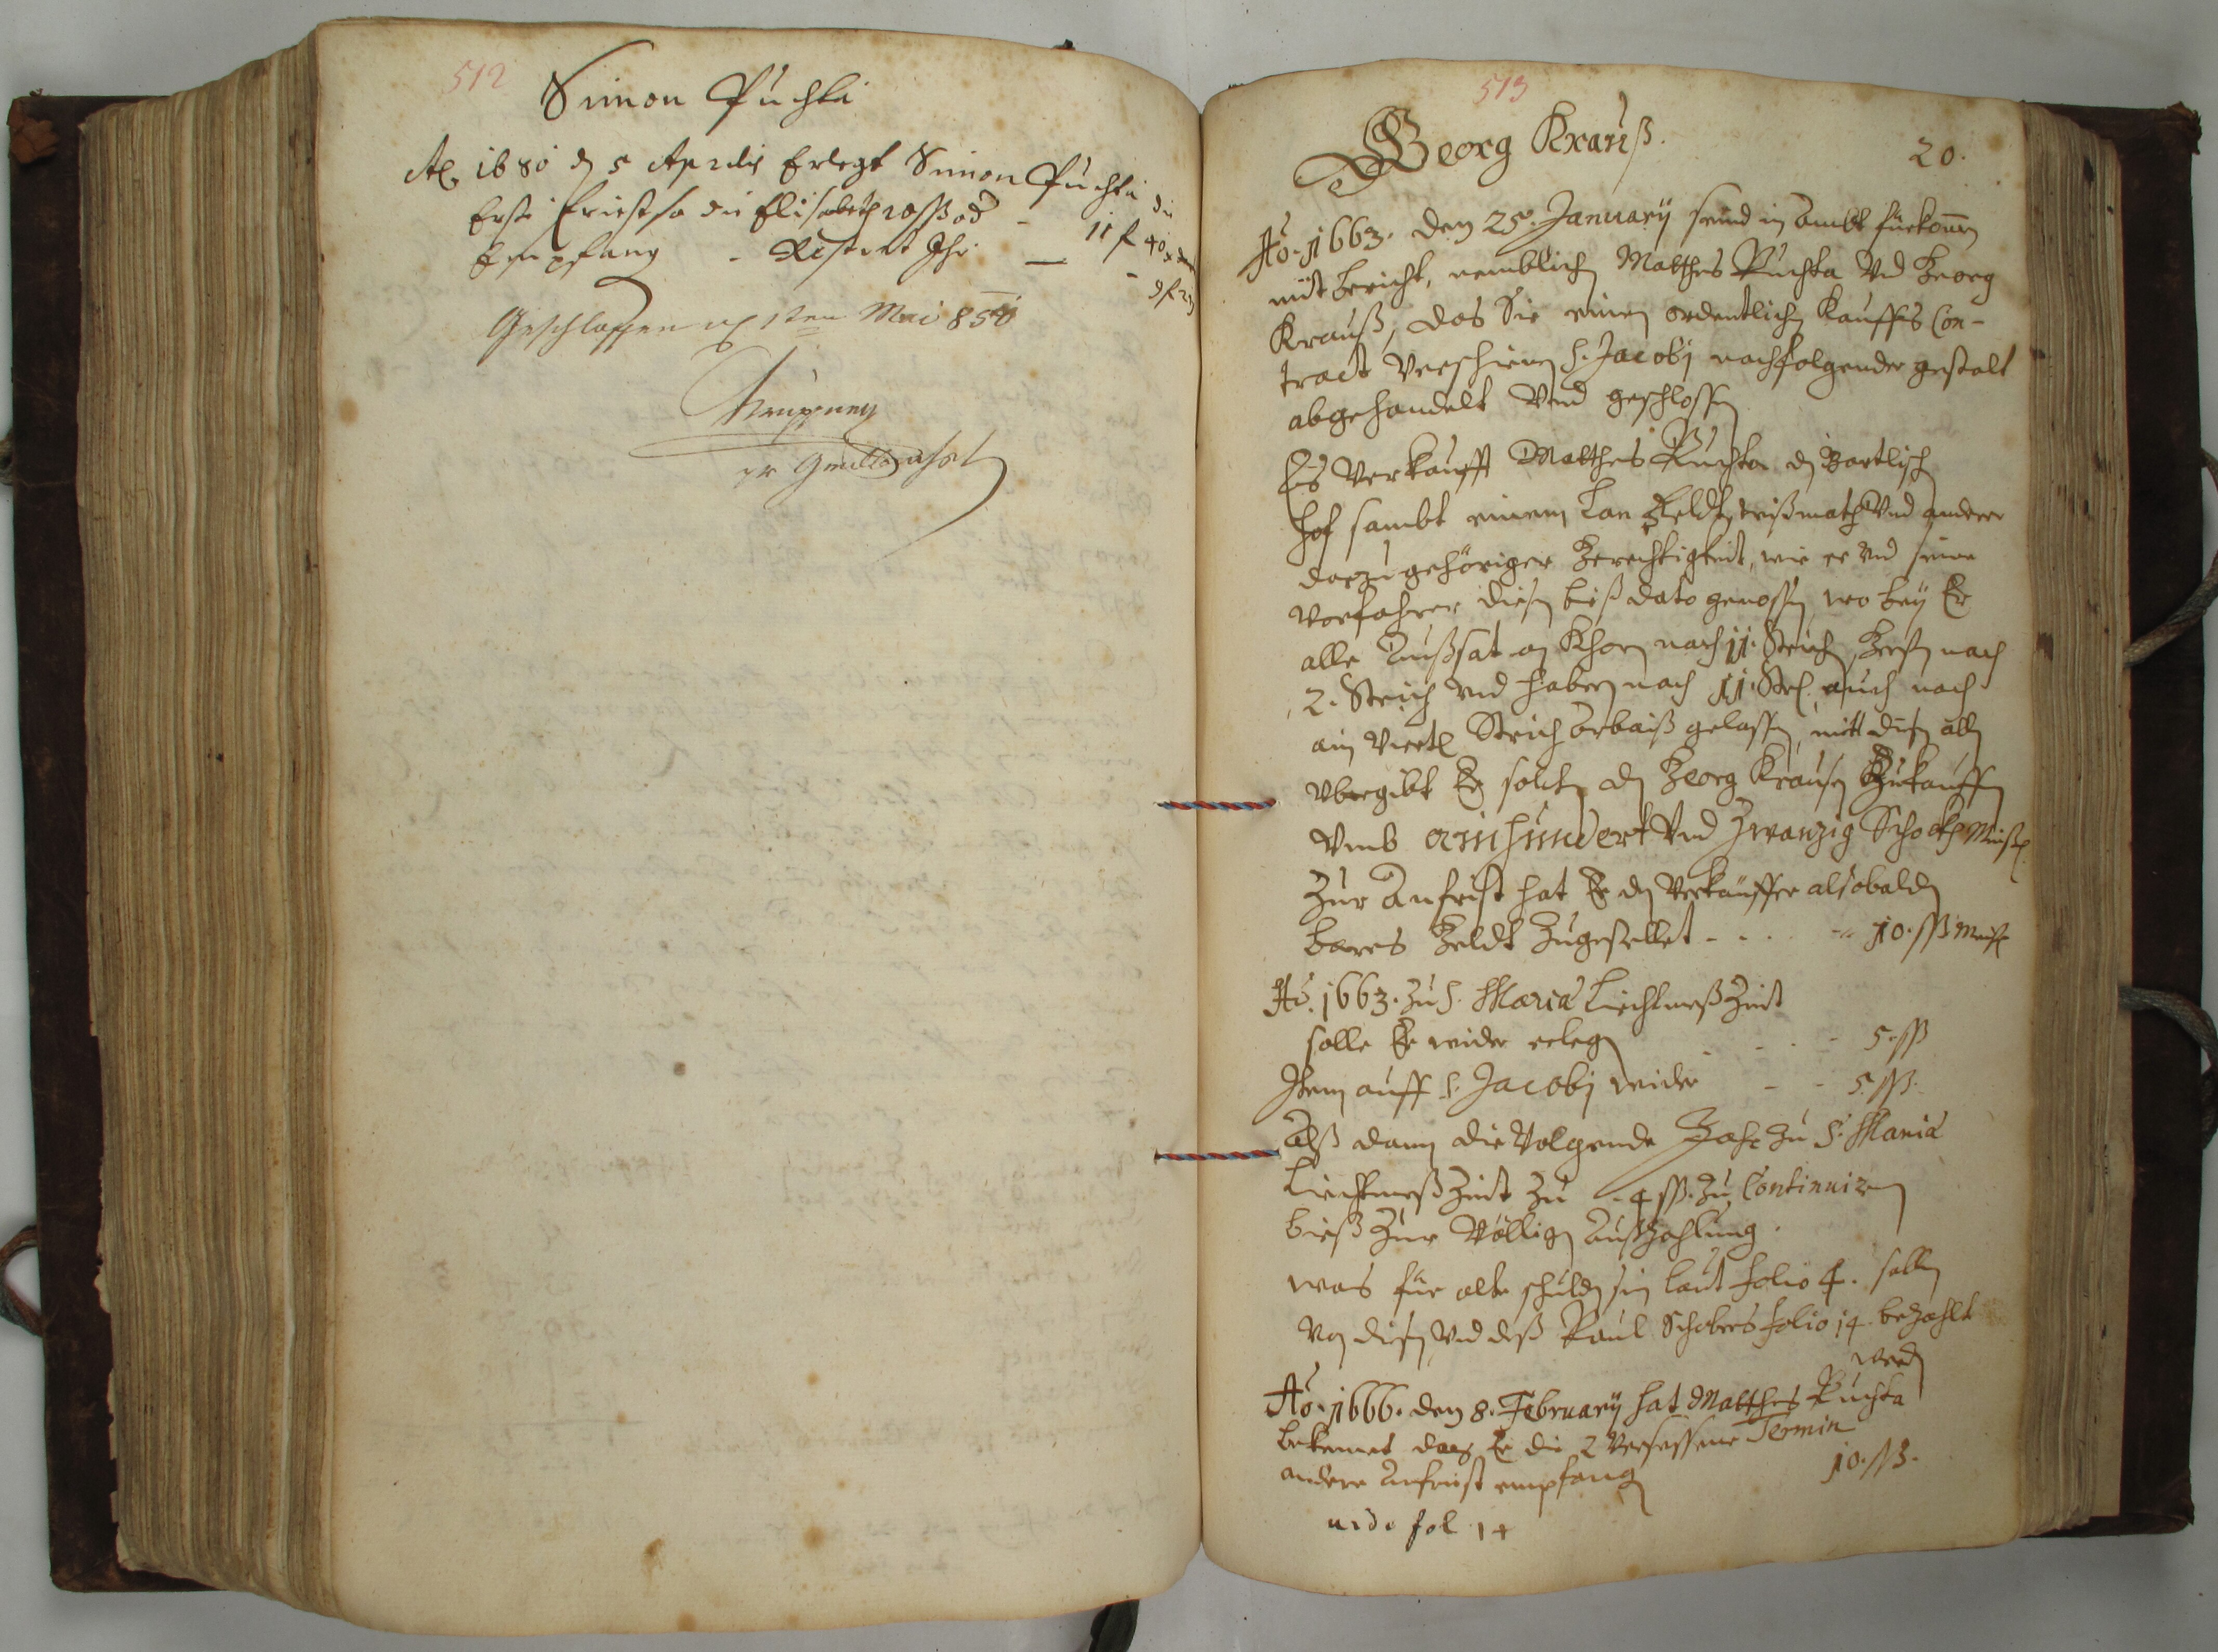 512
Simon Puchta
Ao 1680 dn 5 Aprilis Erlegt Simon Puchta die
Erste Friest so die Elisabeth
Empfang - Restirt Ihr — 11 f 40 x
9 f 20
Geschlossen am 1ten Mai 850
513
Georg Krauß.
20.
Ao. 1663. den 25. January seind in Ambt fürkomen
mit bericht, nemblich Matthes Puchta Vnd Georg
Krauß, das Sie einen ordentlich Kauffs Con-
tract Verschienen S. Jacobj nachfolgender gestalt
abgehandelt Vnd geschlossen
Es Verkaufft Matthes Puchta dn Bartlisch
Hof sambt einem Lan Feldt, wißmath Vnd anderer
darzu gehöriger Gerechtigkeit, wie er Vnd seine
Vorfahren diesen bieß dato genossen, wo bey Er
alle Außsat an Khorn nach 11. Strich, Gersten nach
2. Strich Vnd Habern nach 11. Strich, auch nach
ain Viertl Strich Arbaiß gelassen, mitt disen alln
Vbergibt Er solchn dn Georg Krausen Zukauffen
Vmb ainhundert Vnd Zwanzig Schockh Meißn.
Zur Anfrist hat Er dn Verkäuffer alsobalden
bares Geldt Zugestellet - . . . 10. ßß Meiß
Ao. 1663. zu S. Maria Liechtmeß Zeit
solle Er wider erlegen - - . - 5. ßß
Item auff S. Jacobj wider - - 5. ßß.
Alß dann die Volgende Jahr zu S. Maria
Liechtmeß Zeit zu - 4 ßß. zu Continuiren
bieß Zur Völligen Außzahlung.
was für alte schulden sein laut folio 4. sollen
Von diesen Vnd deß Paul Schobers folio 14. bezahlt
werden
Ao. 1666. den 8. February hat Matthes Puchta
bekennet das Er die 2 Versessene Termin
andere Anfrist empfangen 10. ßß.
vide fol 14